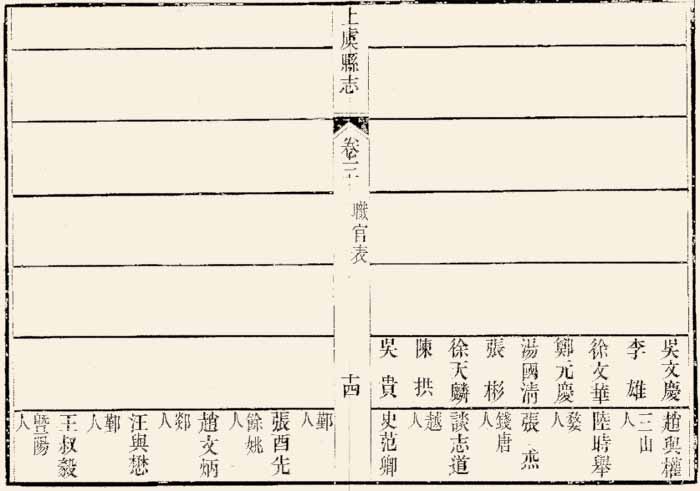 吳文慶
李雄
徐文華
鄭元慶
湯國清
張彬
徐天麟
陳拱
吳貴
趙與權
三山人
陸時舉
婺人
張
錢唐人
談志道
越人
史范卿
上虞縣志
卷三
職官表
十四
鄞人
張酉先
餘姚人
趙文炳
剡人
汪與懋
鄞人
王叔毅
暨陽人